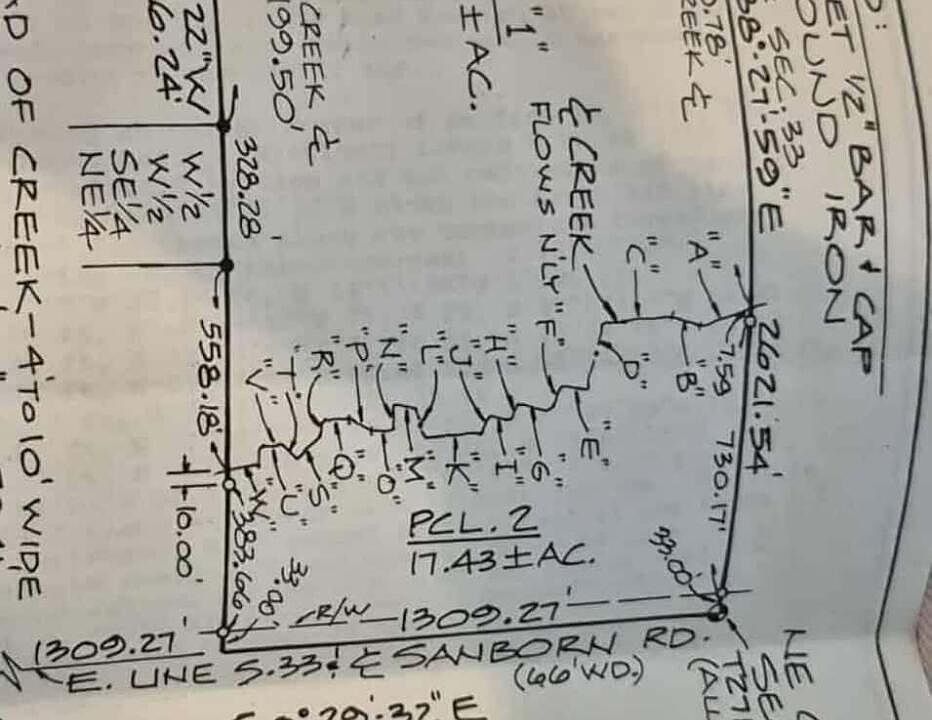 SET 1/2" BAR & CAP
FOUND IRON
SEC. 33
38°-27'-59" E
0.78'
CREEK ℄
"1"
±AC.
CREEK ℄
199.50'
22" W
6.24'
328.28'
W 1/2
W 1/2
SE 1/4
NE 1/4
558.18'
℄ CREEK
FLOWS N'LY
"A"
"B"
"C"
"D"
"E"
"F"
"G"
"H"
"I"
"J"
"K"
"L"
"M"
"N"
"O"
"P"
"Q"
"R"
"S"
"T"
"U"
"V"
"W"
2621.54'
7.59
730.17'
33.00'
10.00'
383.66'
PCL. 2
17.43 ± AC.
R/W
1309.27'
1309.27'
E. LINE S.33 & ℄ SANBORN RD.
(66' WD.)
OF CREEK - 4' TO 10' WIDE
29'-37" E